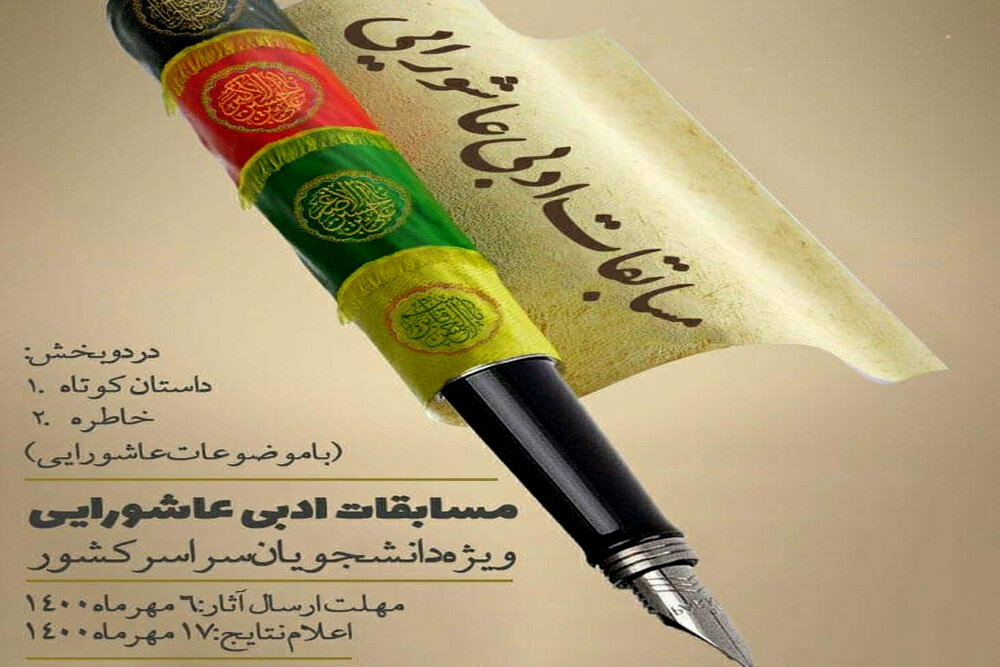 مسابقات ادبی عاشورایی
در دو بخش:
۱. داستان کوتاه
۲. خاطره
(با موضوعات عاشورایی)
مسابقات ادبی عاشورایی
ویژه دانشجویان سراسر کشور
مهلت ارسال آثار: ۶ مهر ماه ۱۴۰۰
اعلام نتایج: ۱۷ مهر ماه ۱۴۰۰